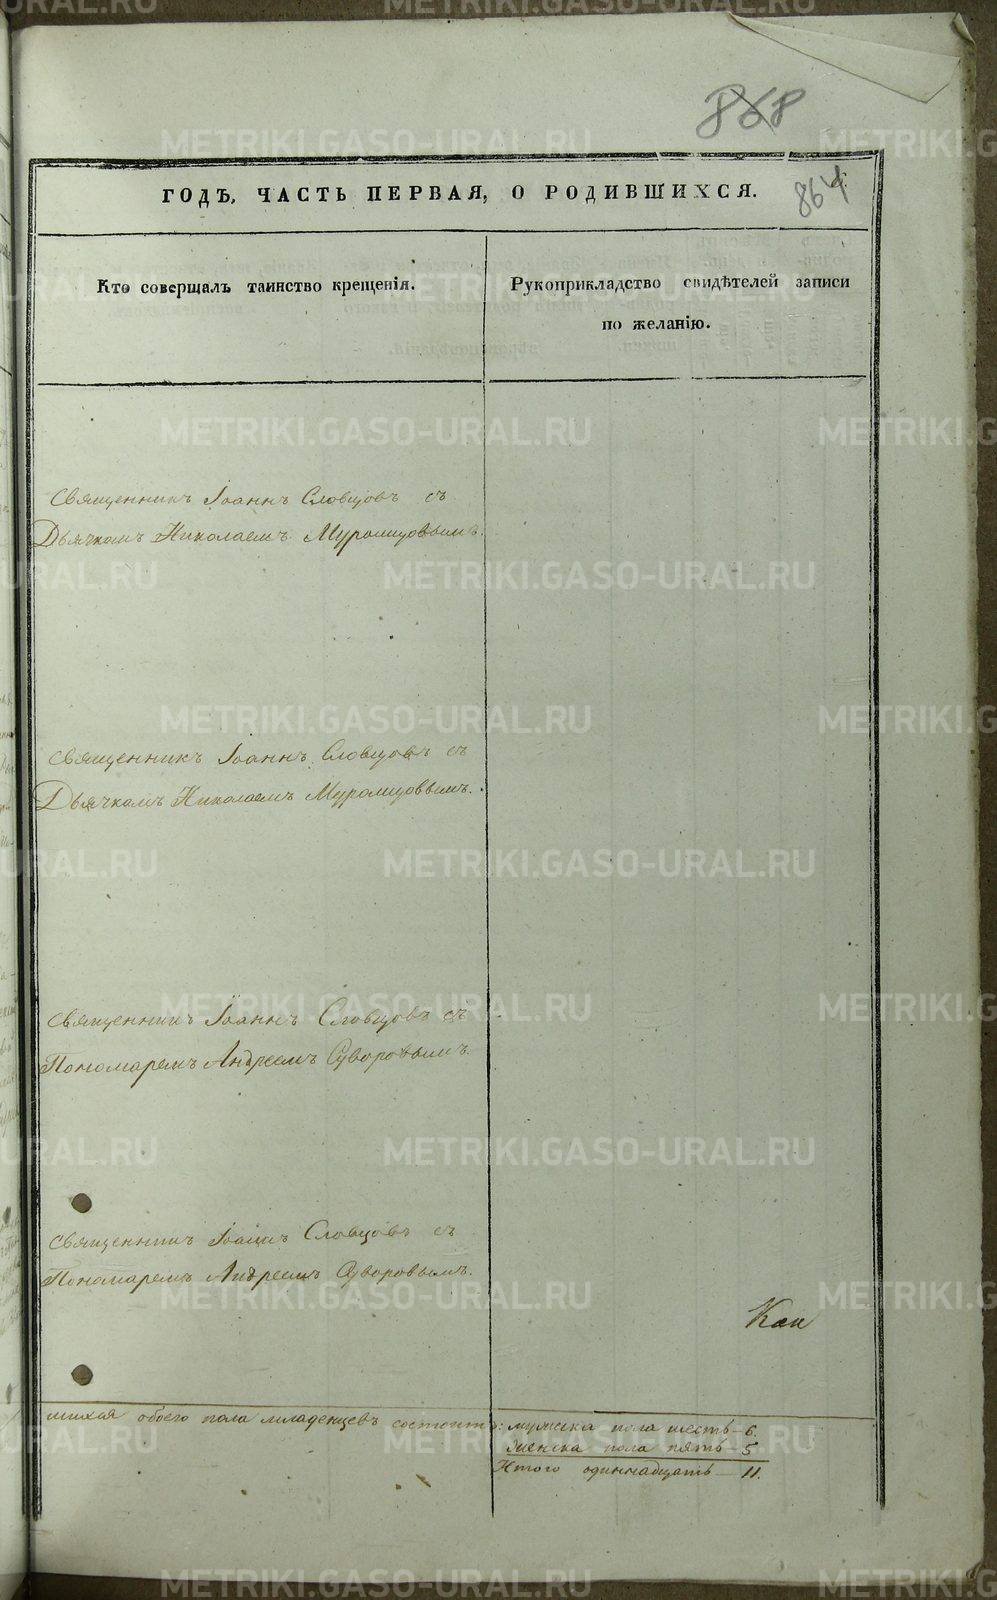 868
864
ГОДЪ, ЧАСТЬ ПЕРВАЯ, О РОДИВШИХСЯ.
Кто совершалъ таинство крещенія.
Рукоприкладство свидѣтелей записи
по желанію.
Священникъ Іоаннъ Словцовъ съ
Дьячкомъ Николаемъ Муромцовымъ.
Священникъ Іоаннъ Словцовъ съ
Дьячкомъ Николаемъ Муромцовымъ.
Священникъ Іоаннъ Словцовъ съ
Пономаремъ Андреемъ Суворовымъ.
Священникъ Іоаннъ Словцовъ съ
Пономаремъ Андреемъ Суворовымъ.
шихся обоего пола младенцевъ состоитъ: мужеска пола шесть – 6.
женска пола пять – 5
Итого одиннадцать – 11.
METRIKI.GASO-URAL.RU